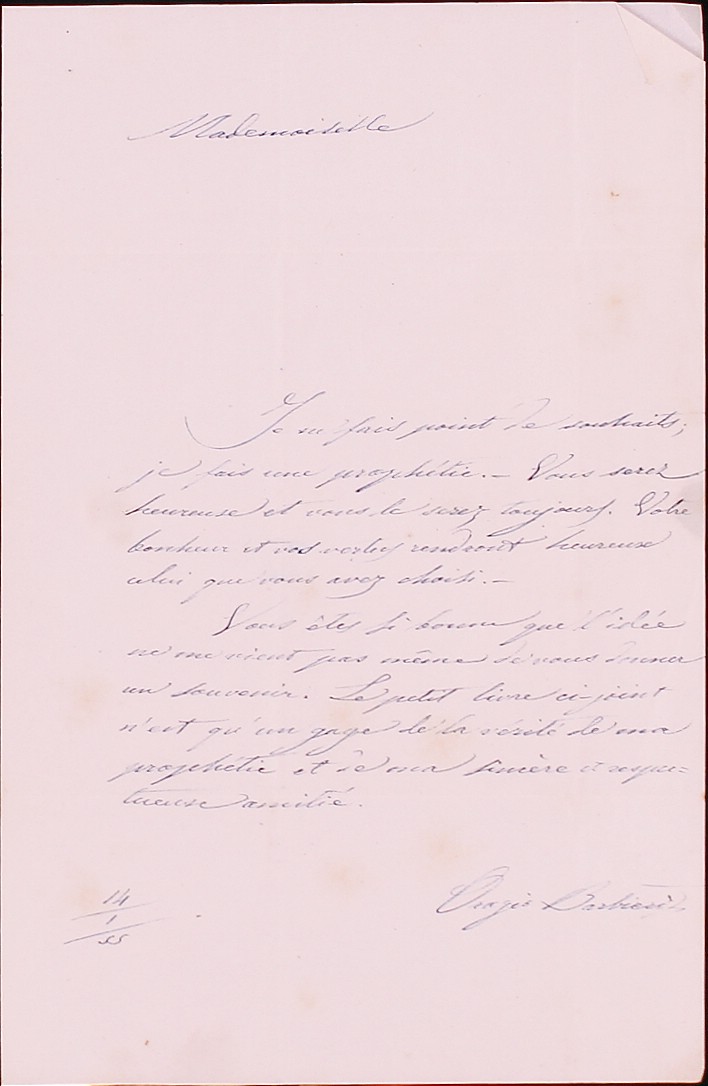 Mademoiselle
Je ne fais point de souhaits;
je fais une prophétie. — Vous serez
heureuse et vous le serez toujours. Votre
bonheur et vos vertus rendront heureux
celui que vous avez choisi. —
Vous êtes si bonne que l'idée
ne me vient pas même de vous donner
un souvenir. Le petit livre ci-joint
n'est qu'un gage de la vérité de ma
prophétie et de ma sincère et respec=
tueuse amitié.
Barbieri
14
1
55